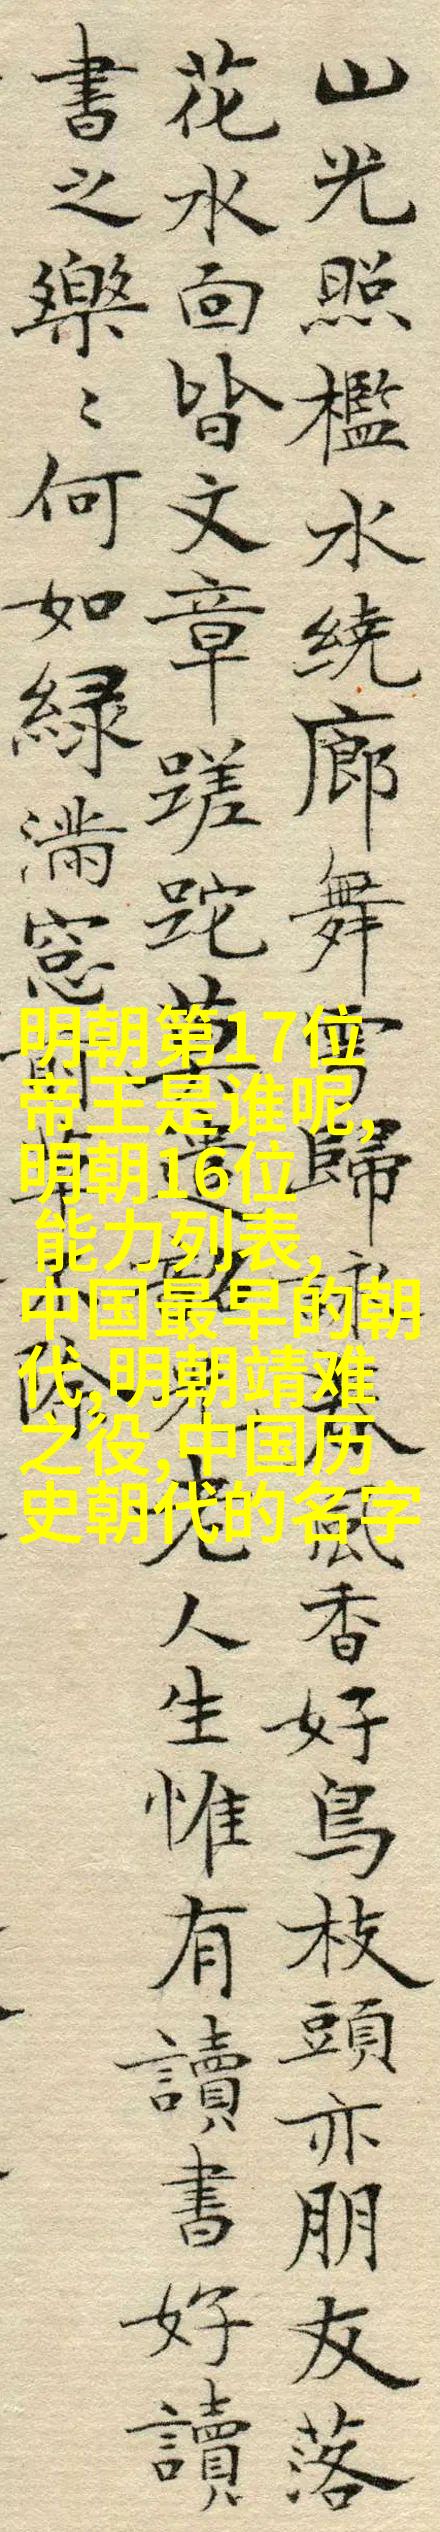 山光照檻水繞廊舞雩歸詠春風香好鳥枝頭亦朋友落
花水面皆文章蹉跎莫遣韶光老人生惟有讀書好讀
書之樂〻何如綠滿窓前草不除
明朝第17位
帝王是谁呢,
明朝16位
能力列表,
中国最早的朝
代,明朝靖难
之役,中国历
史朝代的名字